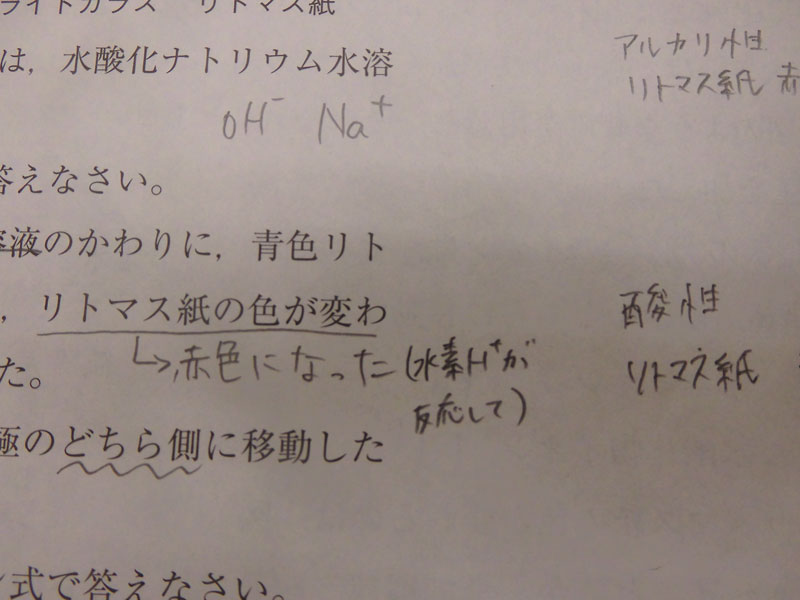 ライドガラス　リトマス紙
は，水酸化ナトリウム水溶
アルカリ性
リトマス紙 赤
OH⁻ Na⁺
答えなさい。
溶液のかわりに，青色リト
，リトマス紙の色が変わ
酸性
→赤色になった(水素H⁺が
反応して)
リトマス紙
た。
極のどちら側に移動した
式で答えなさい。